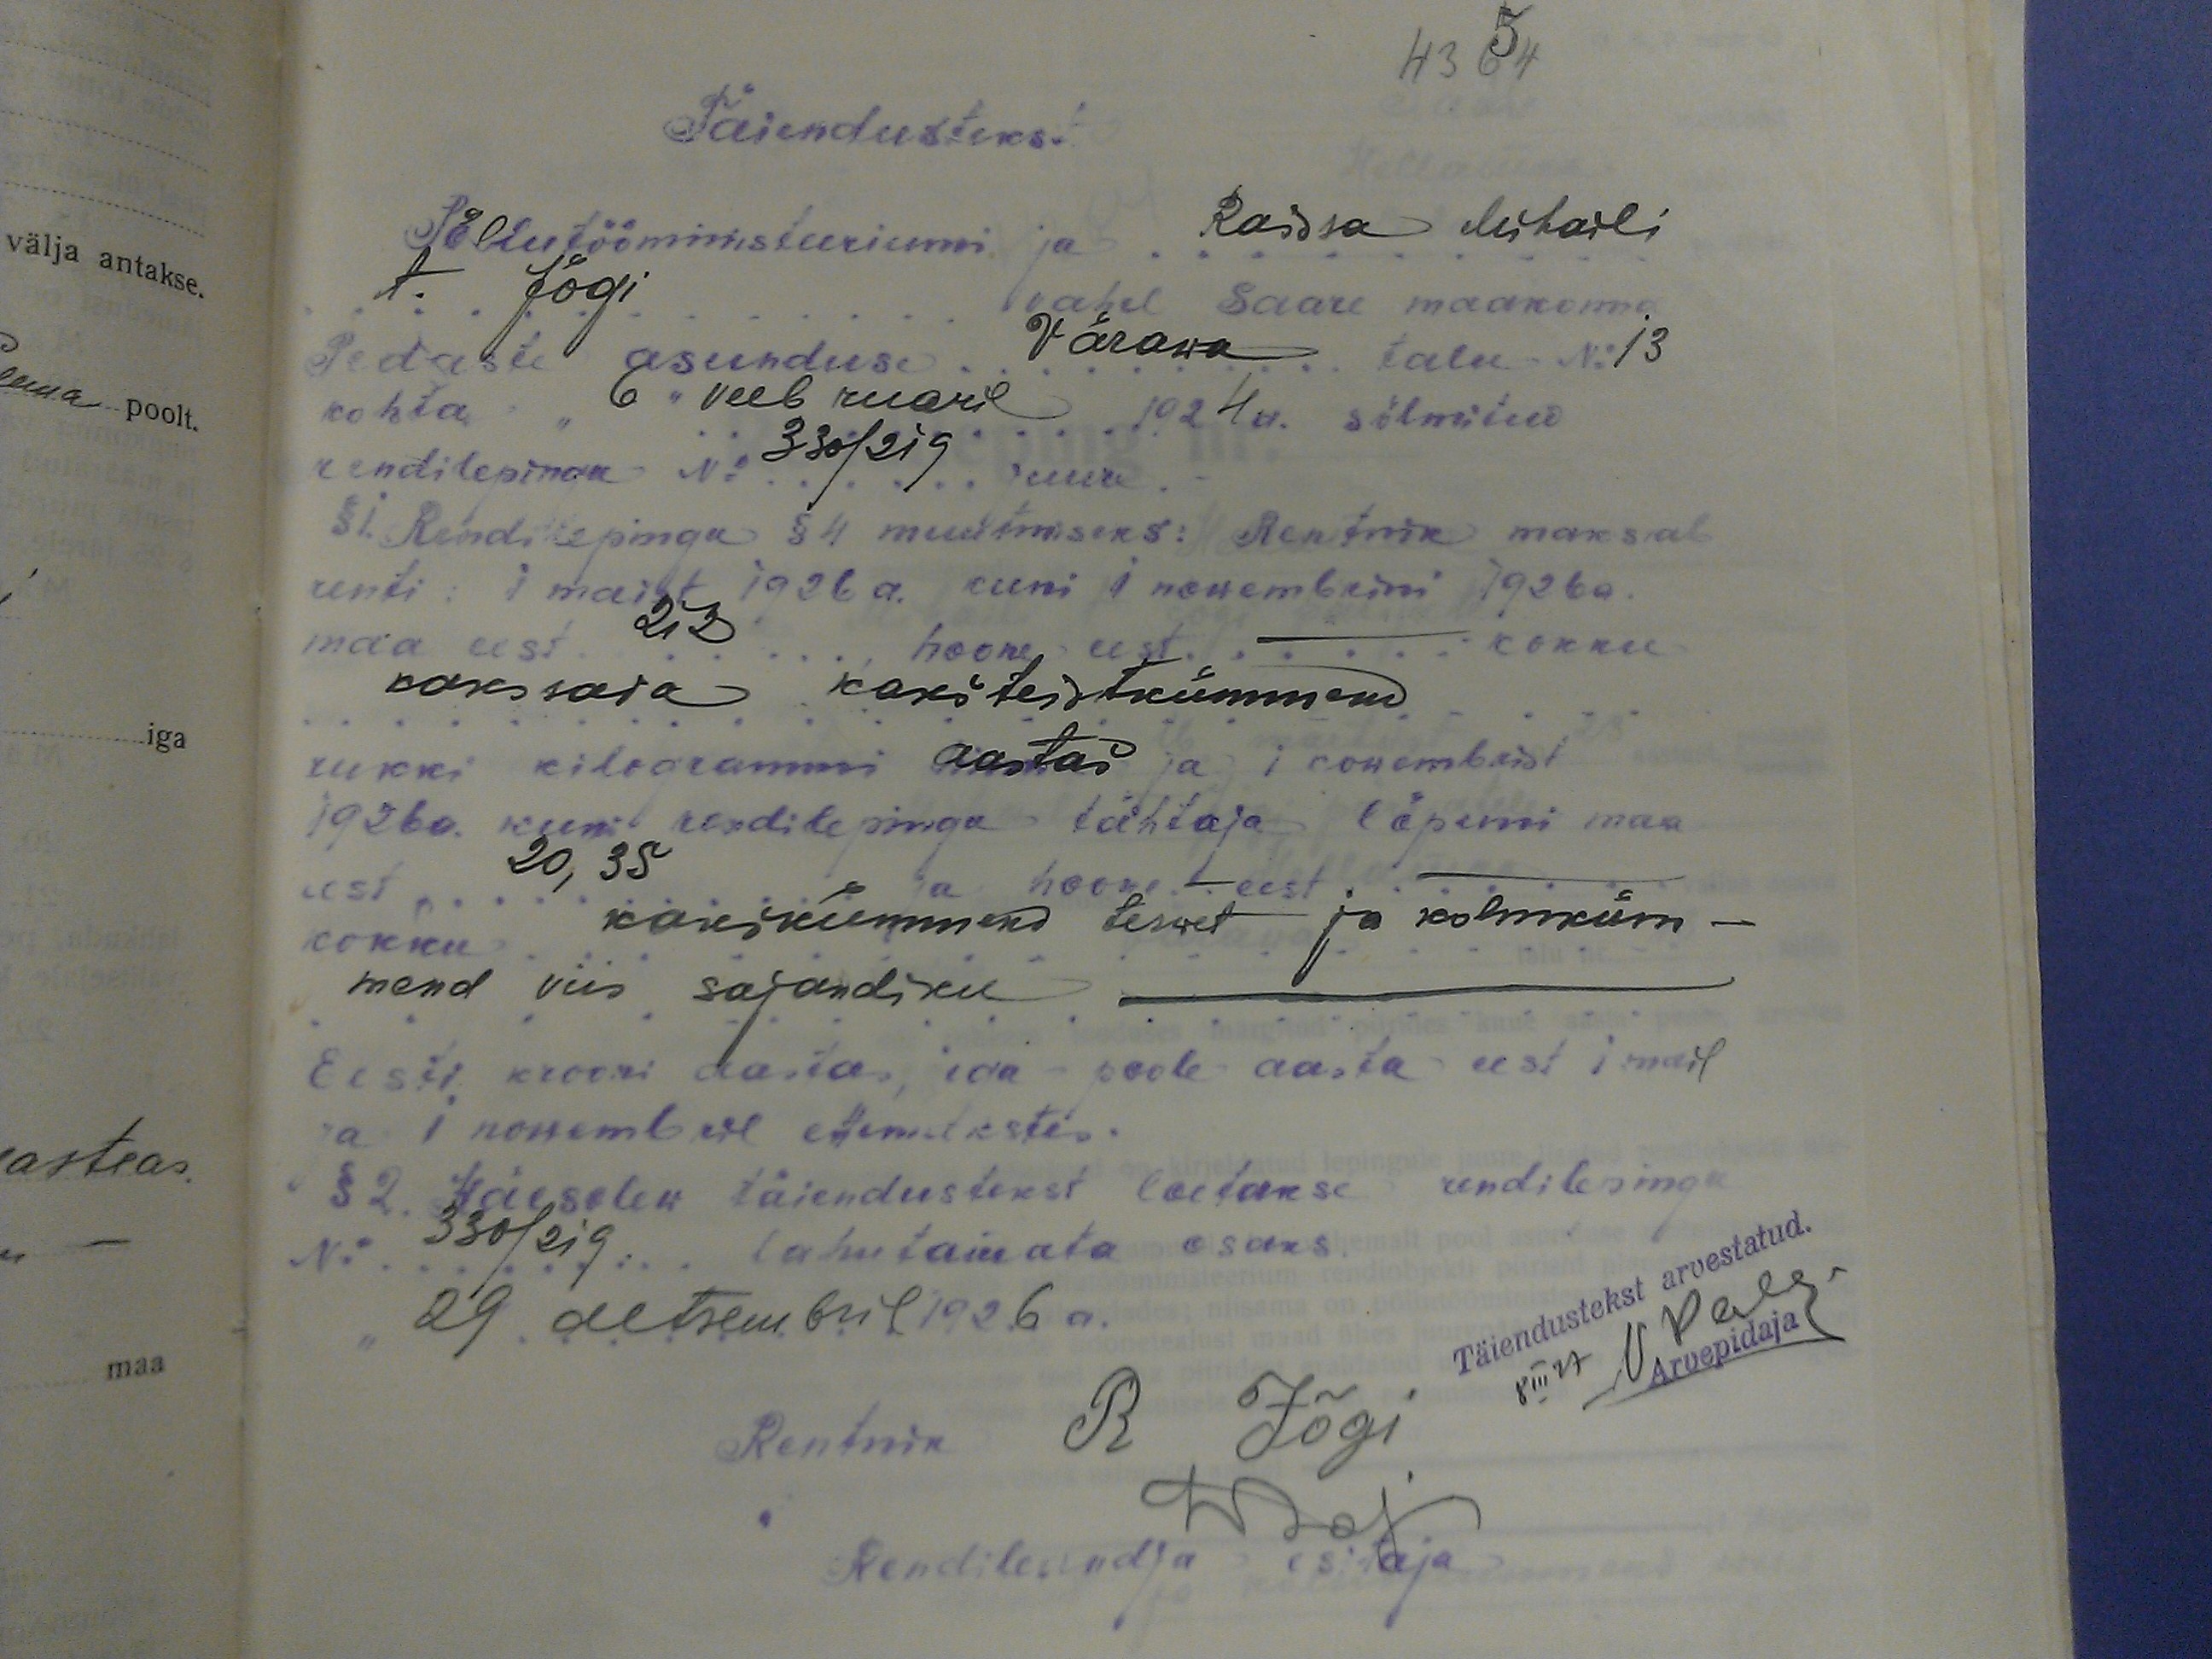 5
43 64
Täiendustekst
Põllutööministeeriumi ja Raissa Mihaili
t. Jõgi vahel Saare maakonna
Pedaste asunduse Värawa talu № 13
kohta „ 6 " veebruaril 1924 a. sõlmitud
rendilepingu № 330/219 juure.
§1. Rendilepingu §4 muutmiseks: Rentnik maksab
renti: 1 maist 1926 a. kuni 1 nowembrini 1926 a.
maa eest 212 hoone eest — kokku
kakssada kaksteistkümmend
rukki kilogrammi aastas ja 1 nowembrist
1926 a. kuni rendilepingu tähtaja lõpuni maa
eest 20,35 ja hoone eest —
kokku kakskümmend terwet ja kolmküm-
mend viis sajandiku —
Eesti krooni aastas, iga poole aasta eest 1 mail
ja 1 nowembril ettemakstes.
§2. Käesolew täiendustekst loetakse rendilepingu
№ 330/219 lahutamata osaks.
„ 29 detsembril 1926 a.
Täiendustekst arvestatud.
8 III 27
Arvepidaja
Rentnik R Jõgi
Rendileandja esitaja
välja antakse.
poolt.
iga
maa